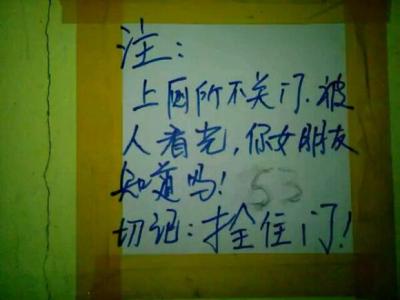 注：
上厕所不关门.被
人看光,你女朋友
知道吗!
53
切记:拴住门!